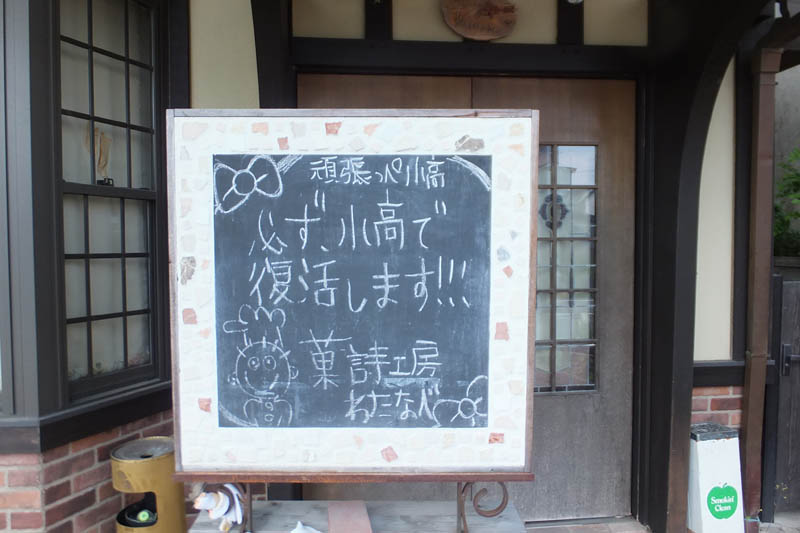 頑張っぺ小高
必ず、小高で
復活します!!!
菓詩工房
わたなべ
Smokin'
Clean